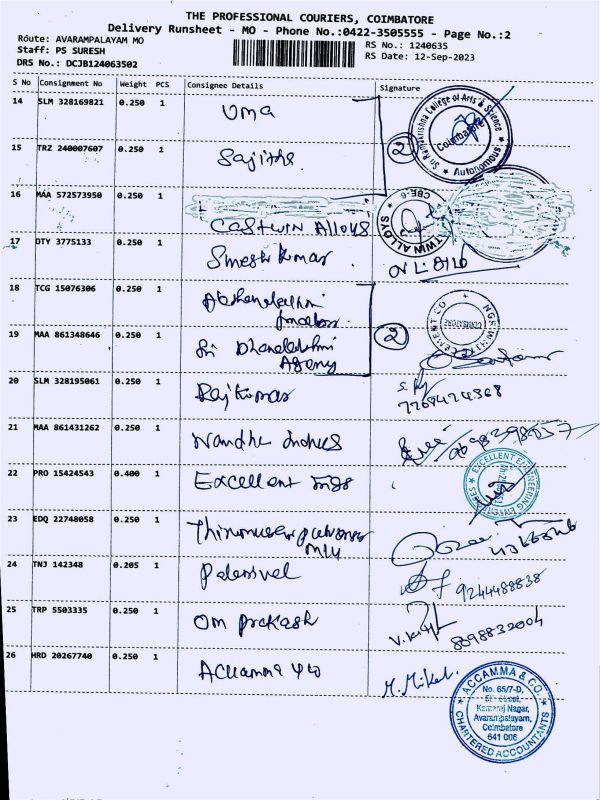 THE PROFESSIONAL COURIERS, COIMBATORE
Delivery Runsheet - MO - Phone No.:0422-3505555 - Page No.:2
Route: AVARAMPALAYAM MO
RS No.: 1240635
Staff: PS SURESH
RS Date: 12-Sep-2023
DRS No.: DCJB124063502
S No Consignment No Weight PCS Consignee Details Signature
14 SLM 328169821 0.250 1 Uma
Sri Ramakrishna College of Arts & Science
Coimbatore
Autonomous
2
15 TRZ 240007607 0.250 1 Sajitha
16 MAA 572573950 0.250 1
CASTWIN ALLOYS
TWIN ALLOYS
CBE-6
17 DTY 3775133 0.250 1 Smesh Kumar
18 TCG 15076306 0.250 1
19 MAA 861348646 0.250 1 Sri Dhanalakshmi
Agency
2
COIMBATORE
20 SLM 328195061 0.250 1 Rajkumar
21 MAA 861431262 0.250 1 Nandhi Indus
22 PRO 15424543 0.400 1 Excellent Engs
EXCELLENT ENGINEERING ENTERPRISES
23 EDQ 22748058 0.250 1
24 TNJ 142348 0.205 1 Palanivel
9244488838
25 TRP 5503335 0.250 1 Om Prakash
8098832004
26 HRD 20267740 0.250 1 Accamma & Co
M. Mikel.
ACCAMMA & CO.
No. 65/7-D,
Kamaraj Nagar,
Avarampalayam,
Coimbatore
641 006
CHARTERED ACCOUNTANTS